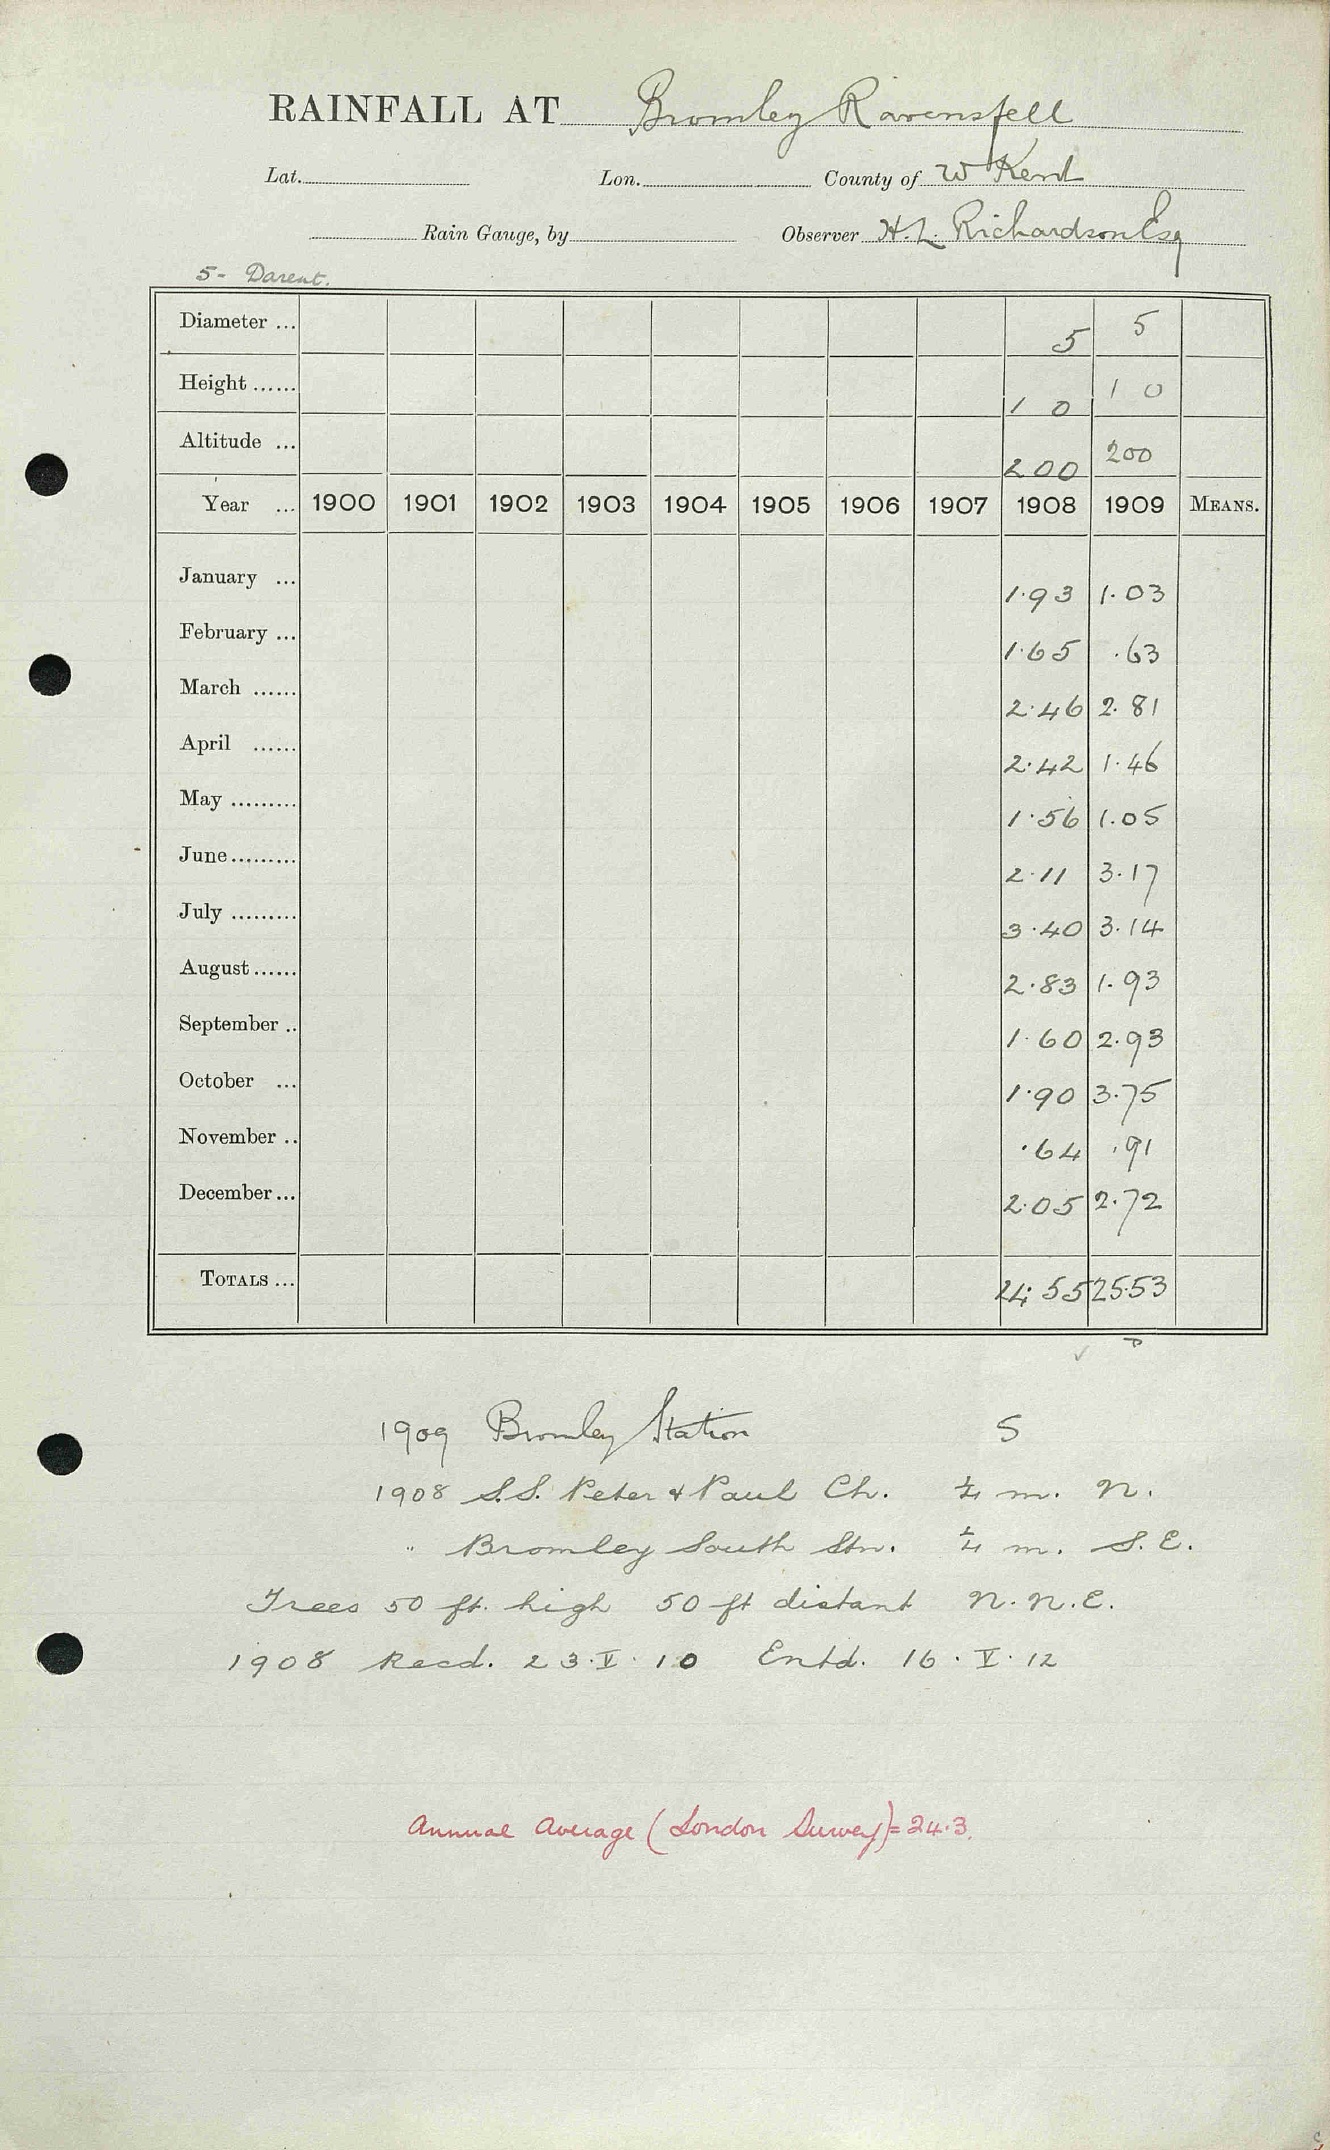 RAINFALL AT Bromley Ravensfell
Lat. Lon. County of W Kent
Rain Gauge, by Observer H. L. Richardson Esq
5 - Darent.
Diameter ... 5 5
Height ...... 1 0 1 0
Altitude ... 200 200
Year ... 1900 1901 1902 1903 1904 1905 1906 1907 1908 1909 MEANS.
January ... 1.93 1.03
February ... 1.65 .63
March ...... 2.46 2.81
April ...... 2.42 1.46
May ......... 1.56 1.05
June ......... 2.11 3.17
July ......... 3.40 3.14
August ...... 2.83 1.93
September .. 1.60 2.93
October ... 1.90 3.75
November .. .64 .91
December ... 2.05 2.72
TOTALS ... 24.55 25.53
1909 Bromley Station S
1908 S.S. Peter & Paul Ch. ¼ m. N.
" Bromley South Stn. ¼ m. S.E.
Trees 50 ft. high 50 ft distant N.N.E.
1908 Recd. 23.V.10 Entd. 16.V.12
Annual Average (London Survey) = 24.3.